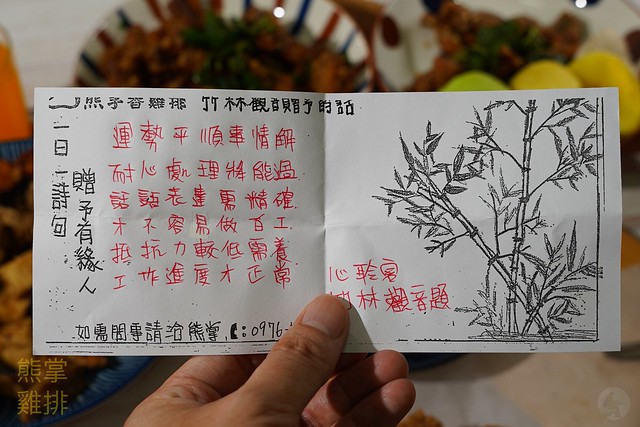 熊手香雞排 竹林觀音贈予的話
一日一詩句
贈予有緣人
運勢平順事情解
耐心處理將能過
話語表達需精確
才不容易做百工
抵抗力較低需養
工作進度才正常
心聆宮
竹林觀音題
如需問事請洽熊掌
0976-
熊掌
雞排